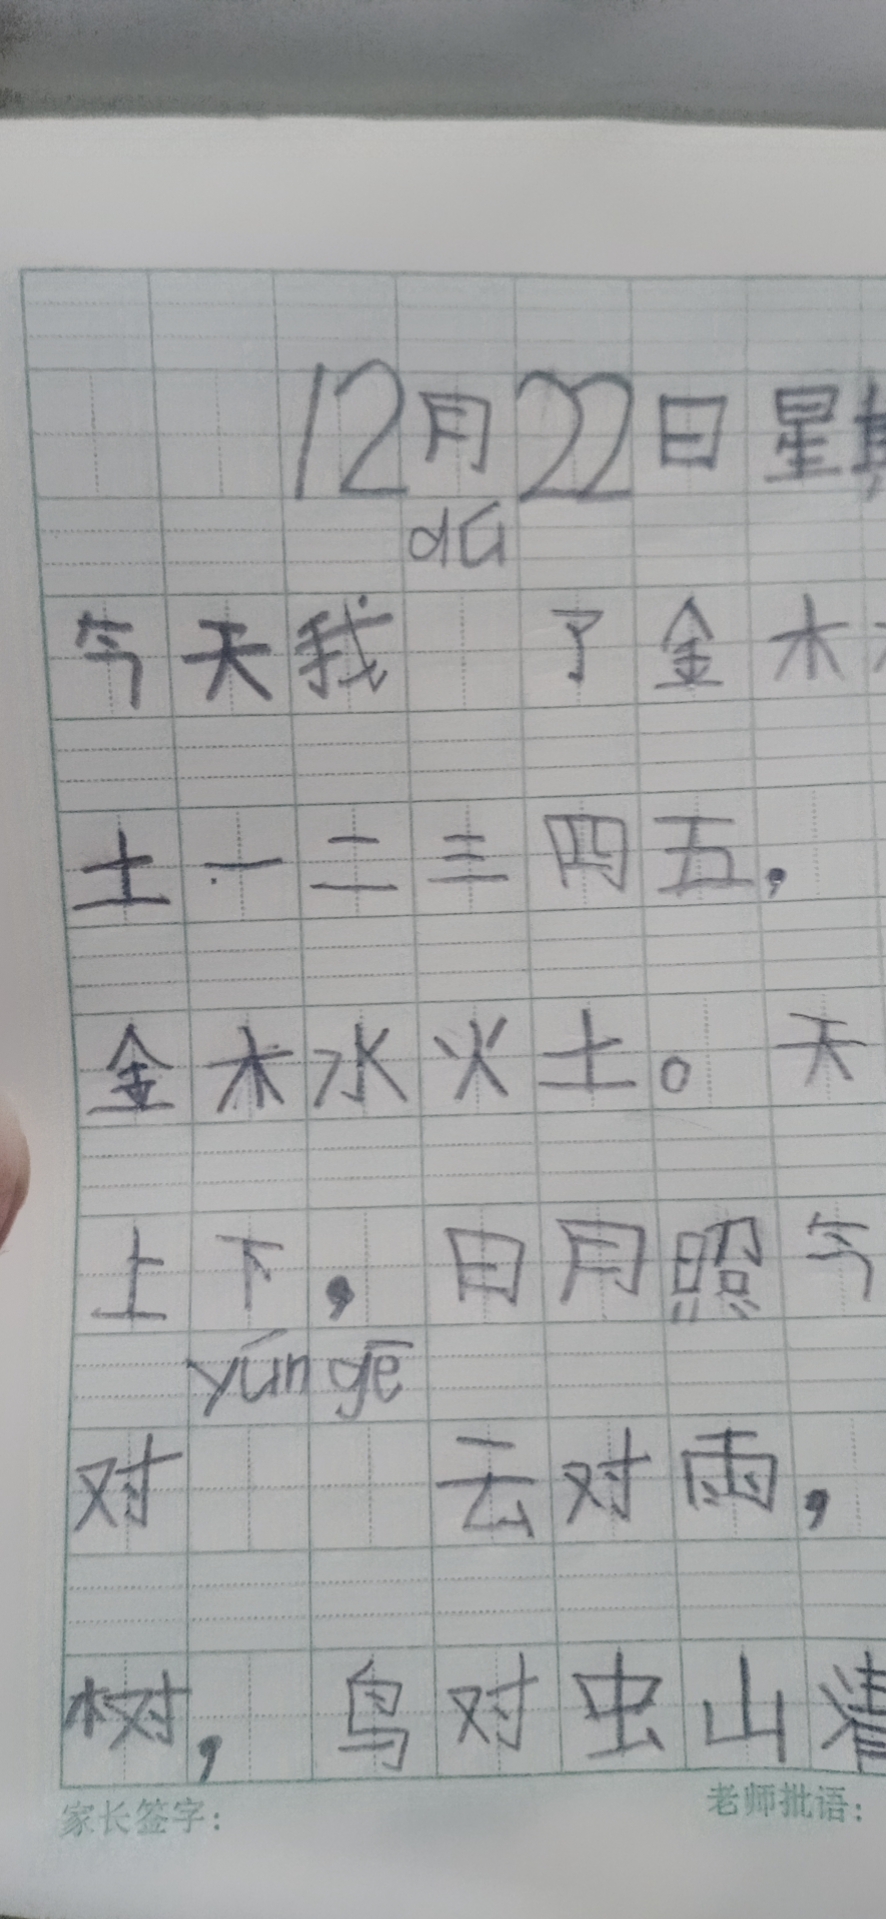 12月22日星期
dú
今天我 了金木
土一二三四五，
金木水火土。天
上下，日月照今
yún gē
对 云对雨，
树，鸟对虫山清
家长签字： 老师批语：